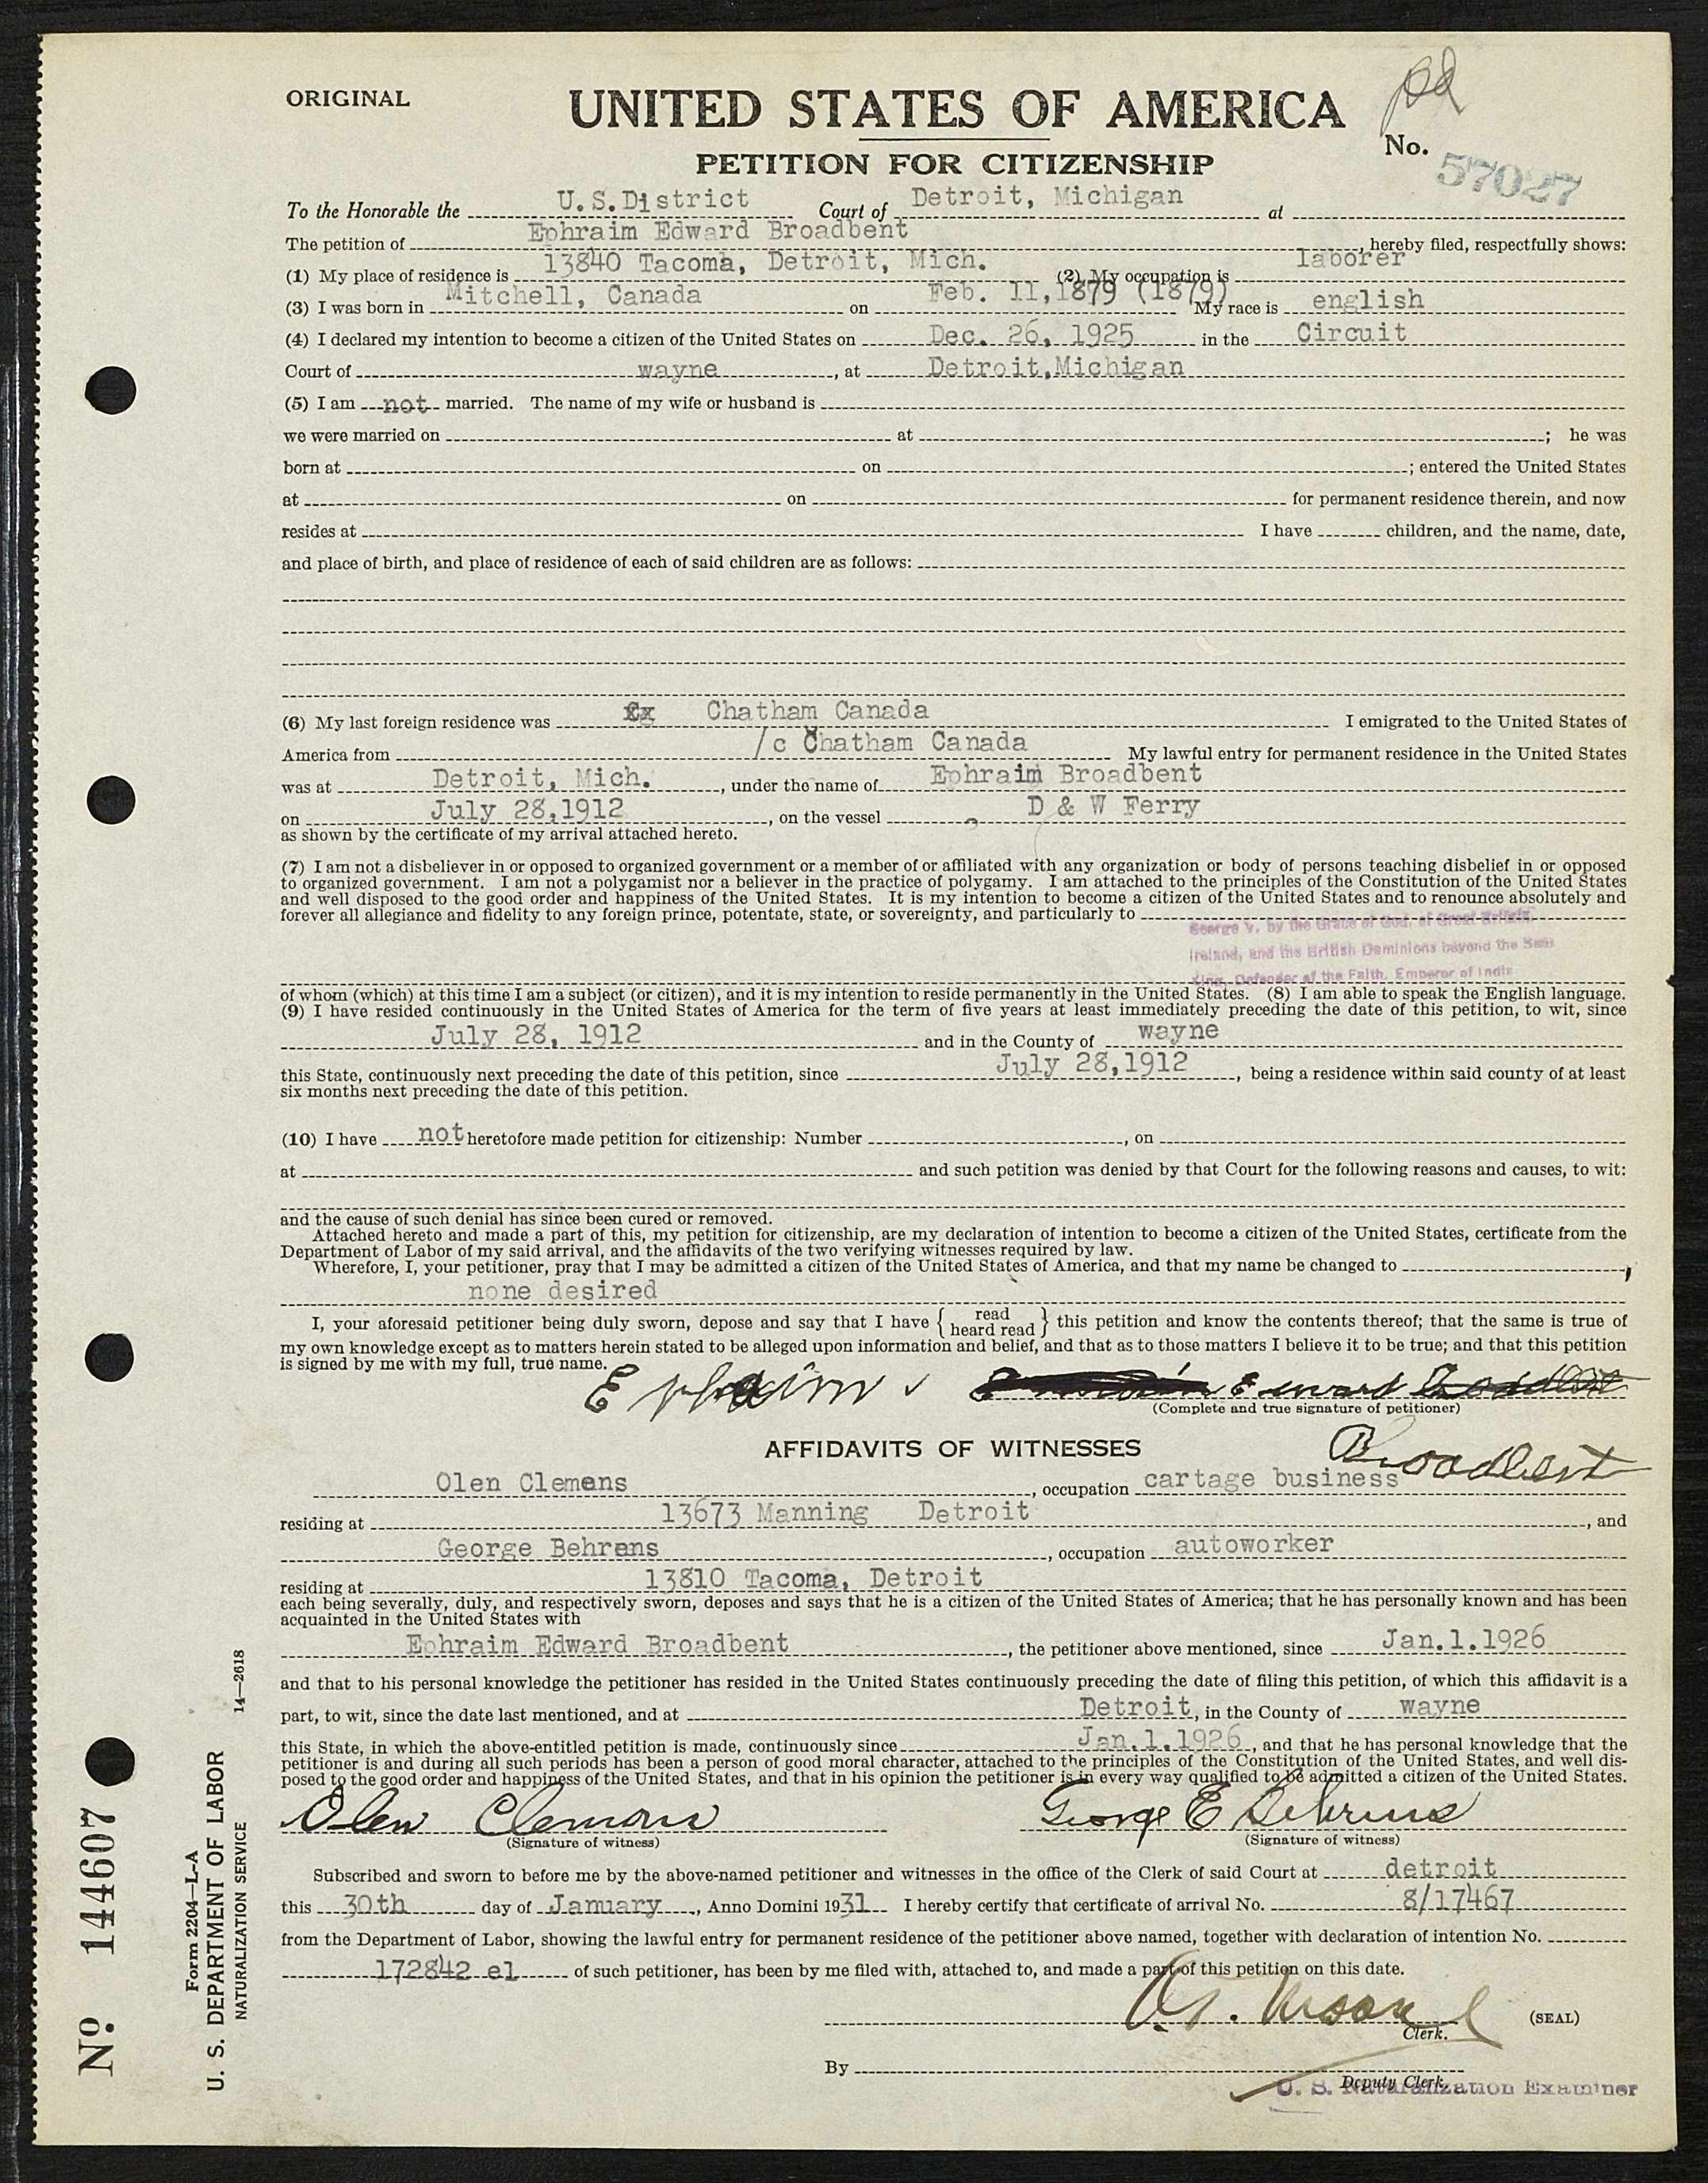 ORIGINAL
UNITED STATES OF AMERICA
pd
No. 57027
PETITION FOR CITIZENSHIP
To the Honorable the U.S.District Court of Detroit, Michigan at
The petition of Ephraim Edward Broadbent, hereby filed, respectfully shows:
(1) My place of residence is 13840 Tacoma, Detroit, Mich. (2) My occupation is laborer
(3) I was born in Mitchell, Canada on Feb. II, 1879 (1879) My race is english
(4) I declared my intention to become a citizen of the United States on Dec. 26, 1925 in the Circuit
Court of wayne, at Detroit,Michigan
(5) I am not married. The name of my wife or husband is
we were married on at ; he was
born at on ; entered the United States
at on for permanent residence therein, and now
resides at I have children, and the name, date,
and place of birth, and place of residence of each of said children are as follows:
(6) My last foreign residence was Chatham Canada I emigrated to the United States of
America from /c Chatham Canada My lawful entry for permanent residence in the United States
was at Detroit, Mich., under the name of Ephraim Broadbent
on July 28,1912, on the vessel D & W Ferry
as shown by the certificate of my arrival attached hereto.
(7) I am not a disbeliever in or opposed to organized government or a member of or affiliated with any organization or body of persons teaching disbelief in or opposed
to organized government. I am not a polygamist nor a believer in the practice of polygamy. I am attached to the principles of the Constitution of the United States
and well disposed to the good order and happiness of the United States. It is my intention to become a citizen of the United States and to renounce absolutely and
forever all allegiance and fidelity to any foreign prince, potentate, state, or sovereignty, and particularly to
George V. by the Grace of God, of Great Britain,
Ireland, and the British Dominions beyond the Seas
King, Defender of the Faith, Emperor of India
of whom (which) at this time I am a subject (or citizen), and it is my intention to reside permanently in the United States. (8) I am able to speak the English language.
(9) I have resided continuously in the United States of America for the term of five years at least immediately preceding the date of this petition, to wit, since
July 28, 1912 and in the County of wayne
this State, continuously next preceding the date of this petition, since July 28,1912, being a residence within said county of at least
six months next preceding the date of this petition.
(10) I have not heretofore made petition for citizenship: Number , on
at and such petition was denied by that Court for the following reasons and causes, to wit:
and the cause of such denial has since been cured or removed.
Attached hereto and made a part of this, my petition for citizenship, are my declaration of intention to become a citizen of the United States, certificate from the
Department of Labor of my said arrival, and the affidavits of the two verifying witnesses required by law.
Wherefore, I, your petitioner, pray that I may be admitted a citizen of the United States of America, and that my name be changed to ,
none desired
I, your aforesaid petitioner being duly sworn, depose and say that I have { read heard read } this petition and know the contents thereof; that the same is true of
my own knowledge except as to matters herein stated to be alleged upon information and belief, and that as to those matters I believe it to be true; and that this petition
is signed by me with my full, true name.
Ephraim Edward
(Complete and true signature of petitioner)
Broadbent
AFFIDAVITS OF WITNESSES
Olen Clemens, occupation cartage business
residing at 13673 Manning Detroit, and
George Behrens, occupation autoworker
residing at 13810 Tacoma, Detroit
each being severally, duly, and respectively sworn, deposes and says that he is a citizen of the United States of America; that he has personally known and has been
acquainted in the United States with
Ephraim Edward Broadbent, the petitioner above mentioned, since Jan.1.1926
and that to his personal knowledge the petitioner has resided in the United States continuously preceding the date of filing this petition, of which this affidavit is a
part, to wit, since the date last mentioned, and at Detroit, in the County of wayne
this State, in which the above-entitled petition is made, continuously since Jan.1.1926, and that he has personal knowledge that the
petitioner is and during all such periods has been a person of good moral character, attached to the principles of the Constitution of the United States, and well dis-
posed to the good order and happiness of the United States, and that in his opinion the petitioner is in every way qualified to be admitted a citizen of the United States.
Olen Clemons George E Behrens
(Signature of witness) (Signature of witness)
Subscribed and sworn to before me by the above-named petitioner and witnesses in the office of the Clerk of said Court at detroit
this 30th day of January, Anno Domini 1931 I hereby certify that certificate of arrival No. 8/17467
from the Department of Labor, showing the lawful entry for permanent residence of the petitioner above named, together with declaration of intention No.
172842 el of such petitioner, has been by me filed with, attached to, and made a part of this petition on this date.
Clerk. (SEAL)
By
Deputy Clerk.
U. S. Naturalization Examiner
No. 144607
Form 2204—L-A
U. S. DEPARTMENT OF LABOR
NATURALIZATION SERVICE
14—2618